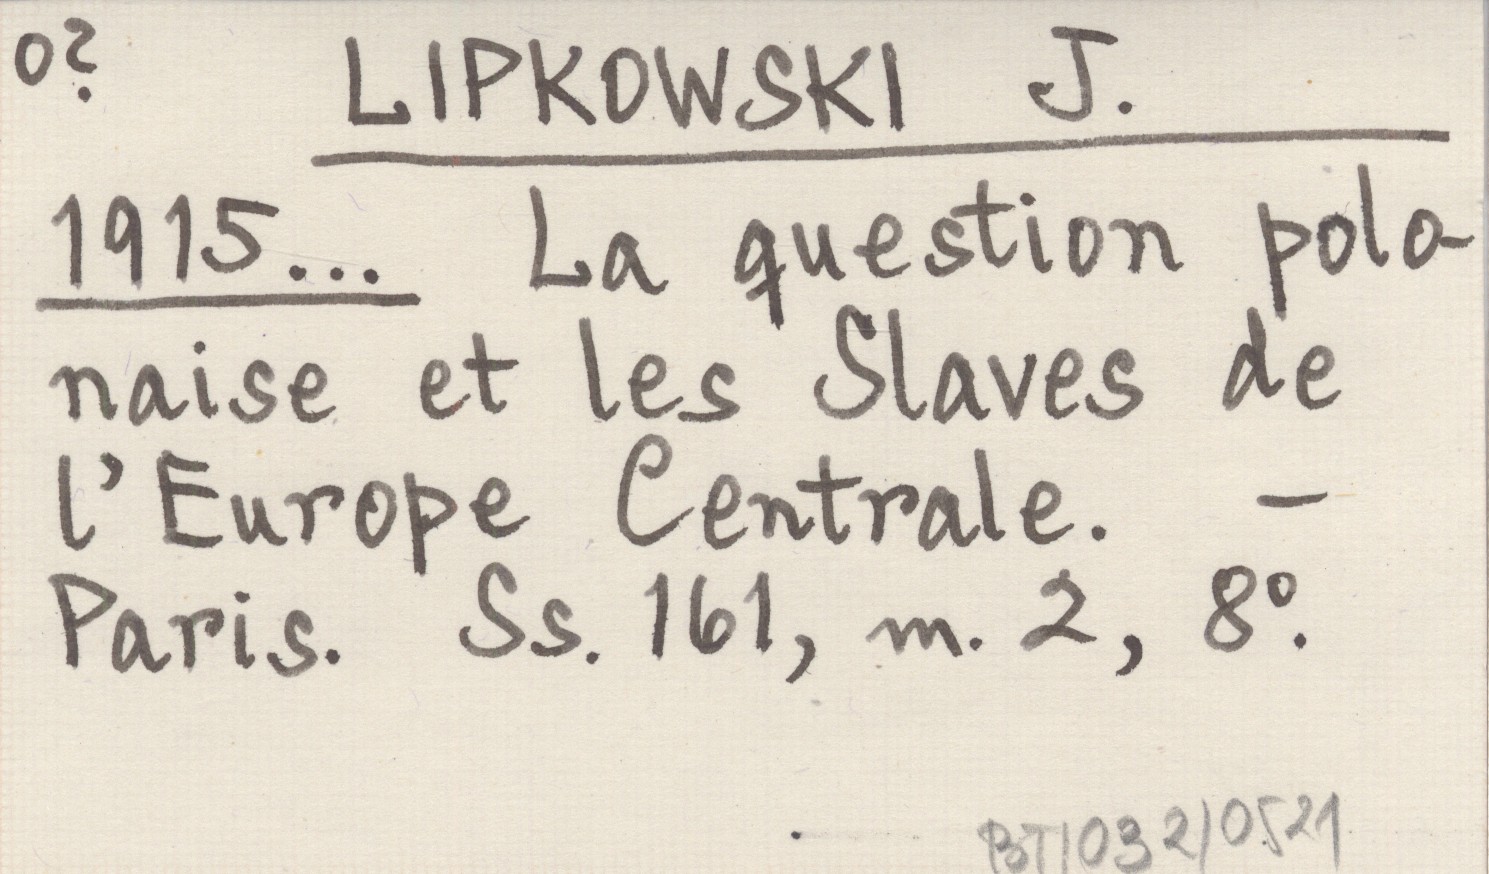 o?
LIPKOWSKI J.
1915... La question polo-
naise et les Slaves de
l'Europe Centrale. –
Paris. Ss. 161, m. 2, 8°.
BT/032/0521